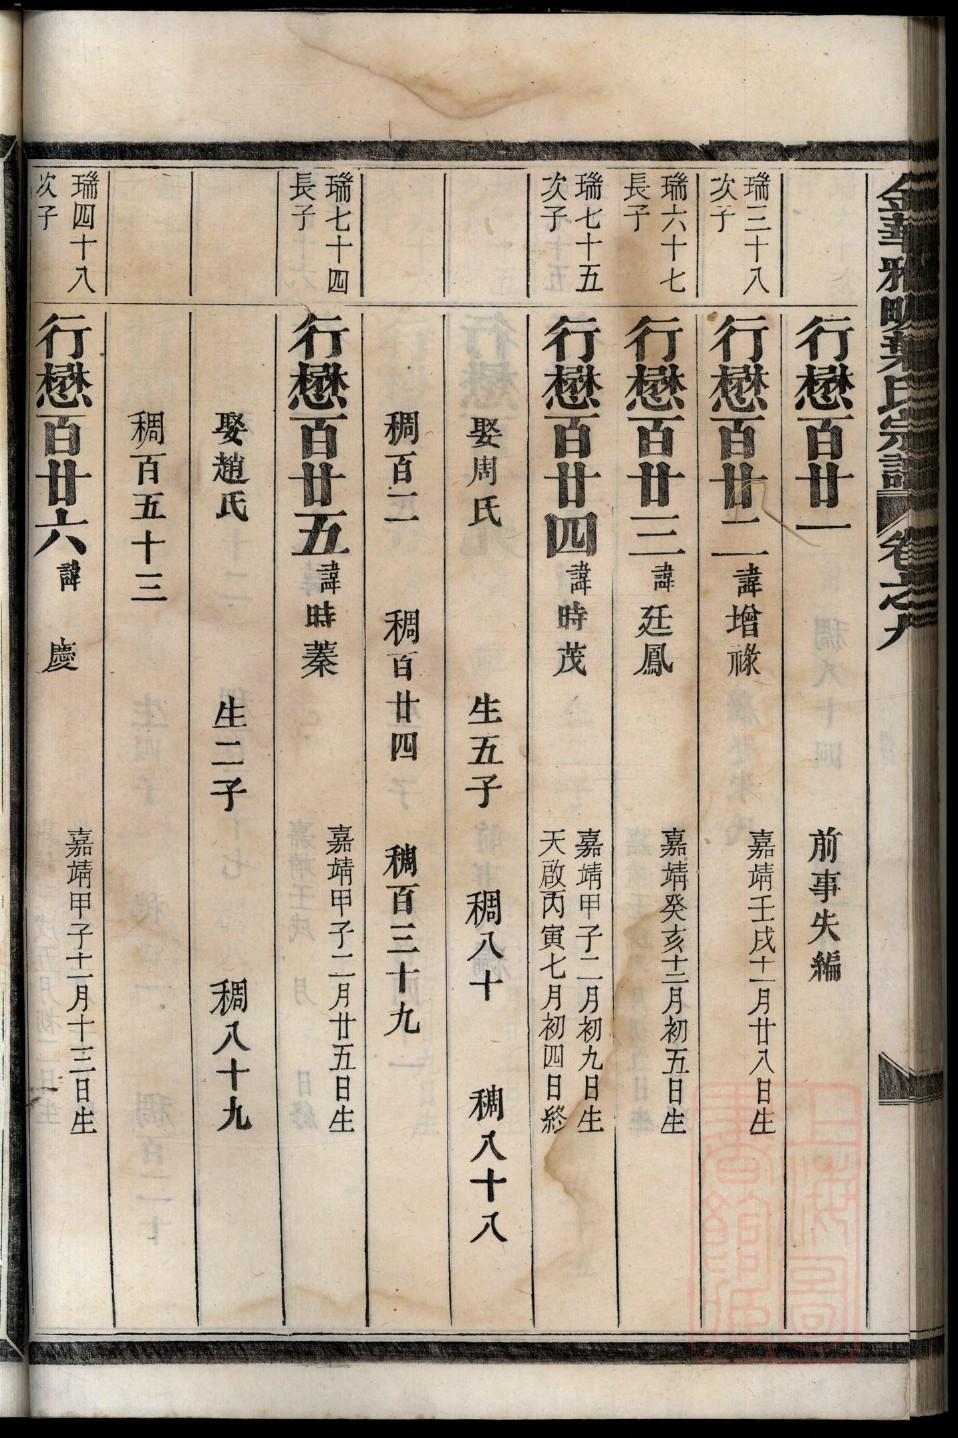 金華雅畈葉氏宗譜 卷之九
行懋百廿一 前事失編
瑞三十八次子
行懋百廿二 諱增祿 嘉靖壬戌十一月廿八日生
瑞六十七長子
行懋百廿三 諱廷鳳 嘉靖癸亥十二月初五日生
瑞七十五次子
行懋百廿四 諱時茂 嘉靖甲子二月初九日生
天啟丙寅七月初四日終
娶周氏 生五子 稠八十 稠八十八
稠百二 稠百廿四 稠百三十九
瑞七十四長子
行懋百廿五 諱時蓁 嘉靖甲子二月廿五日生
娶趙氏 生二子 稠八十九
稠百五十三
瑞四十八次子
行懋百廿六 諱慶 嘉靖甲子十一月十三日生
上海圖書館藏